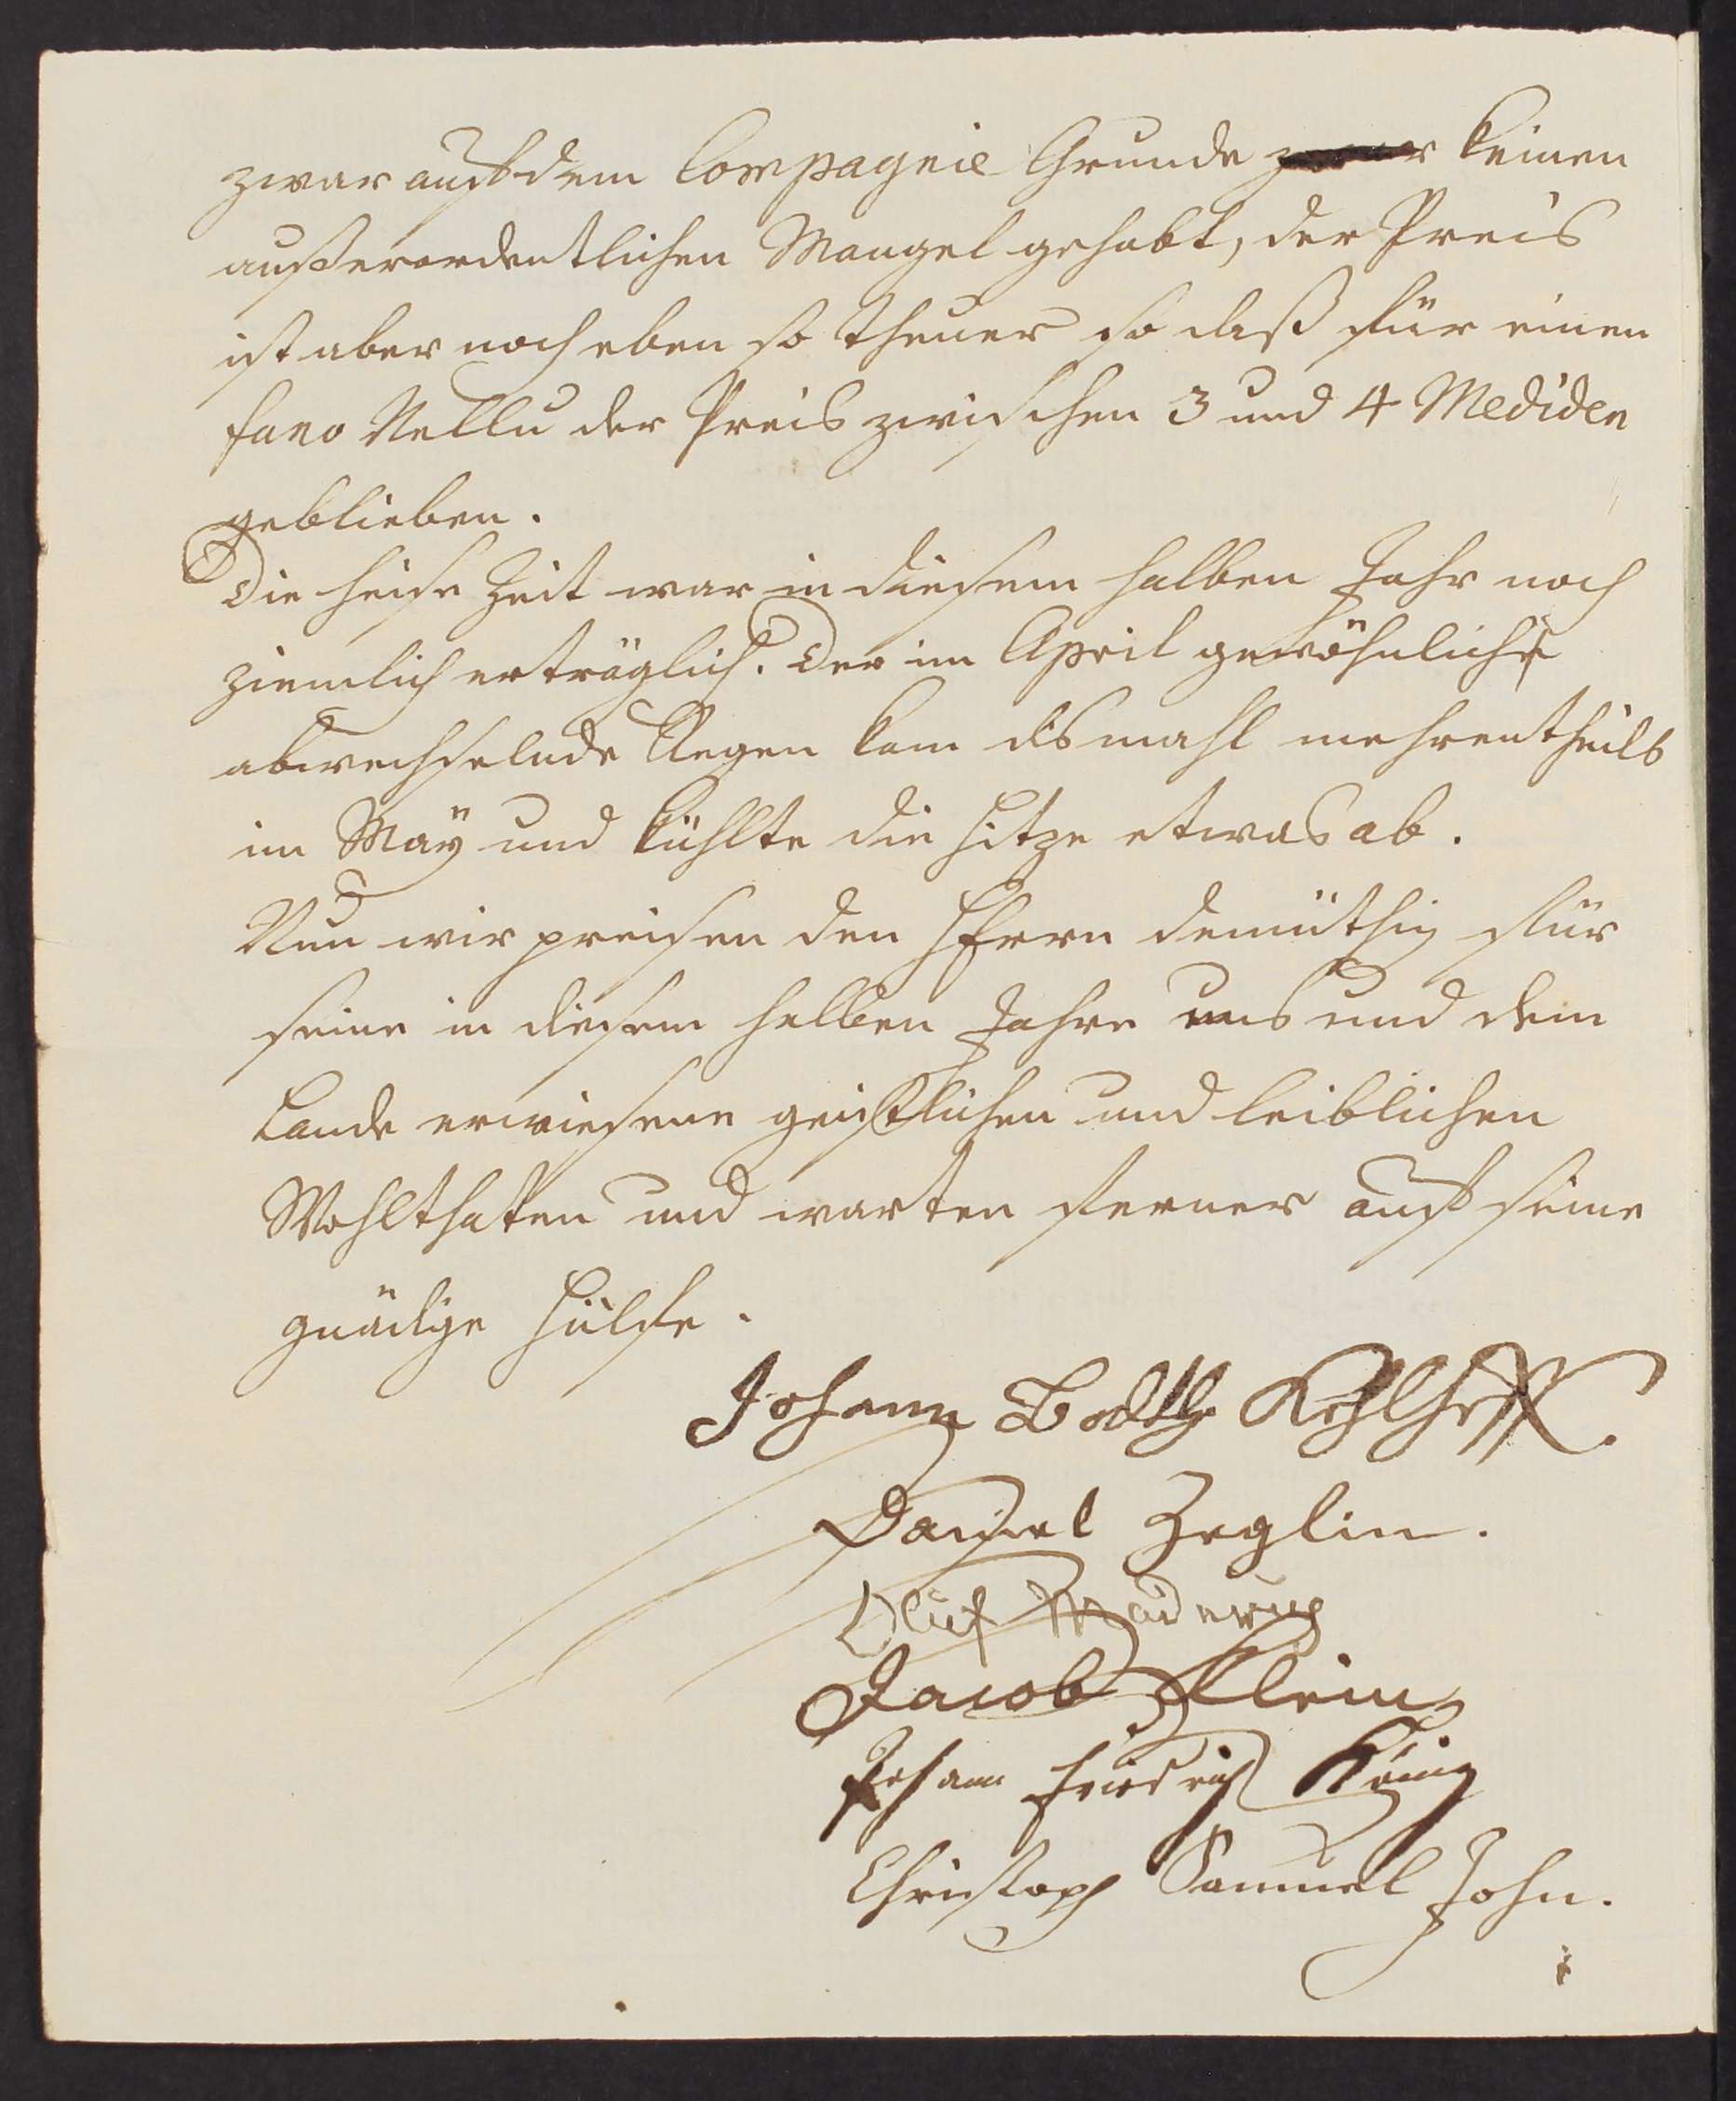 zwar auf dem Compagnie Grunde zwar keinen
außerordentlichen Mangel gehabt, der Preis
ist aber noch eben so theuer so daß für einen
fano Nellu der Preis zwischen 3 und 4 Mediden
geblieben.
Die heise Zeit war in diesem halben Jahr noch
ziemlich erträglich. Der im April gewöhnliche
abwechselnde Regen kam dismahl mehrentheils
im Maÿ und kühlte die Hitze etwas ab.
Nun wir preisen den HErrn demüthig für
seine in diesem halben Jahre uns und dem
Lande erwiesene geistlichen und leiblichen
Wohlthaten und warten ferner auf seine
gnädige Hülfe.
Johann Balth Kohlhoff.
Daniel Zeglin.
Oluf Maderup
Jacob Klein
Johann Friedrich König
Christoph Samuel John.